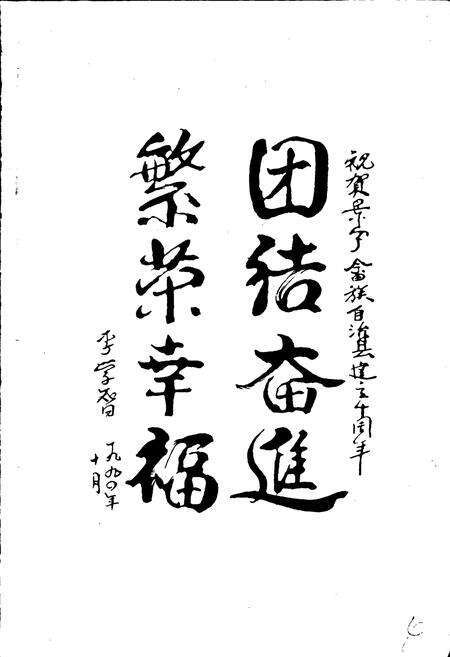 祝賀景宁畲族自治县建立十周年
团结奋進
繁荣幸福
李学智
一九九四年
十月